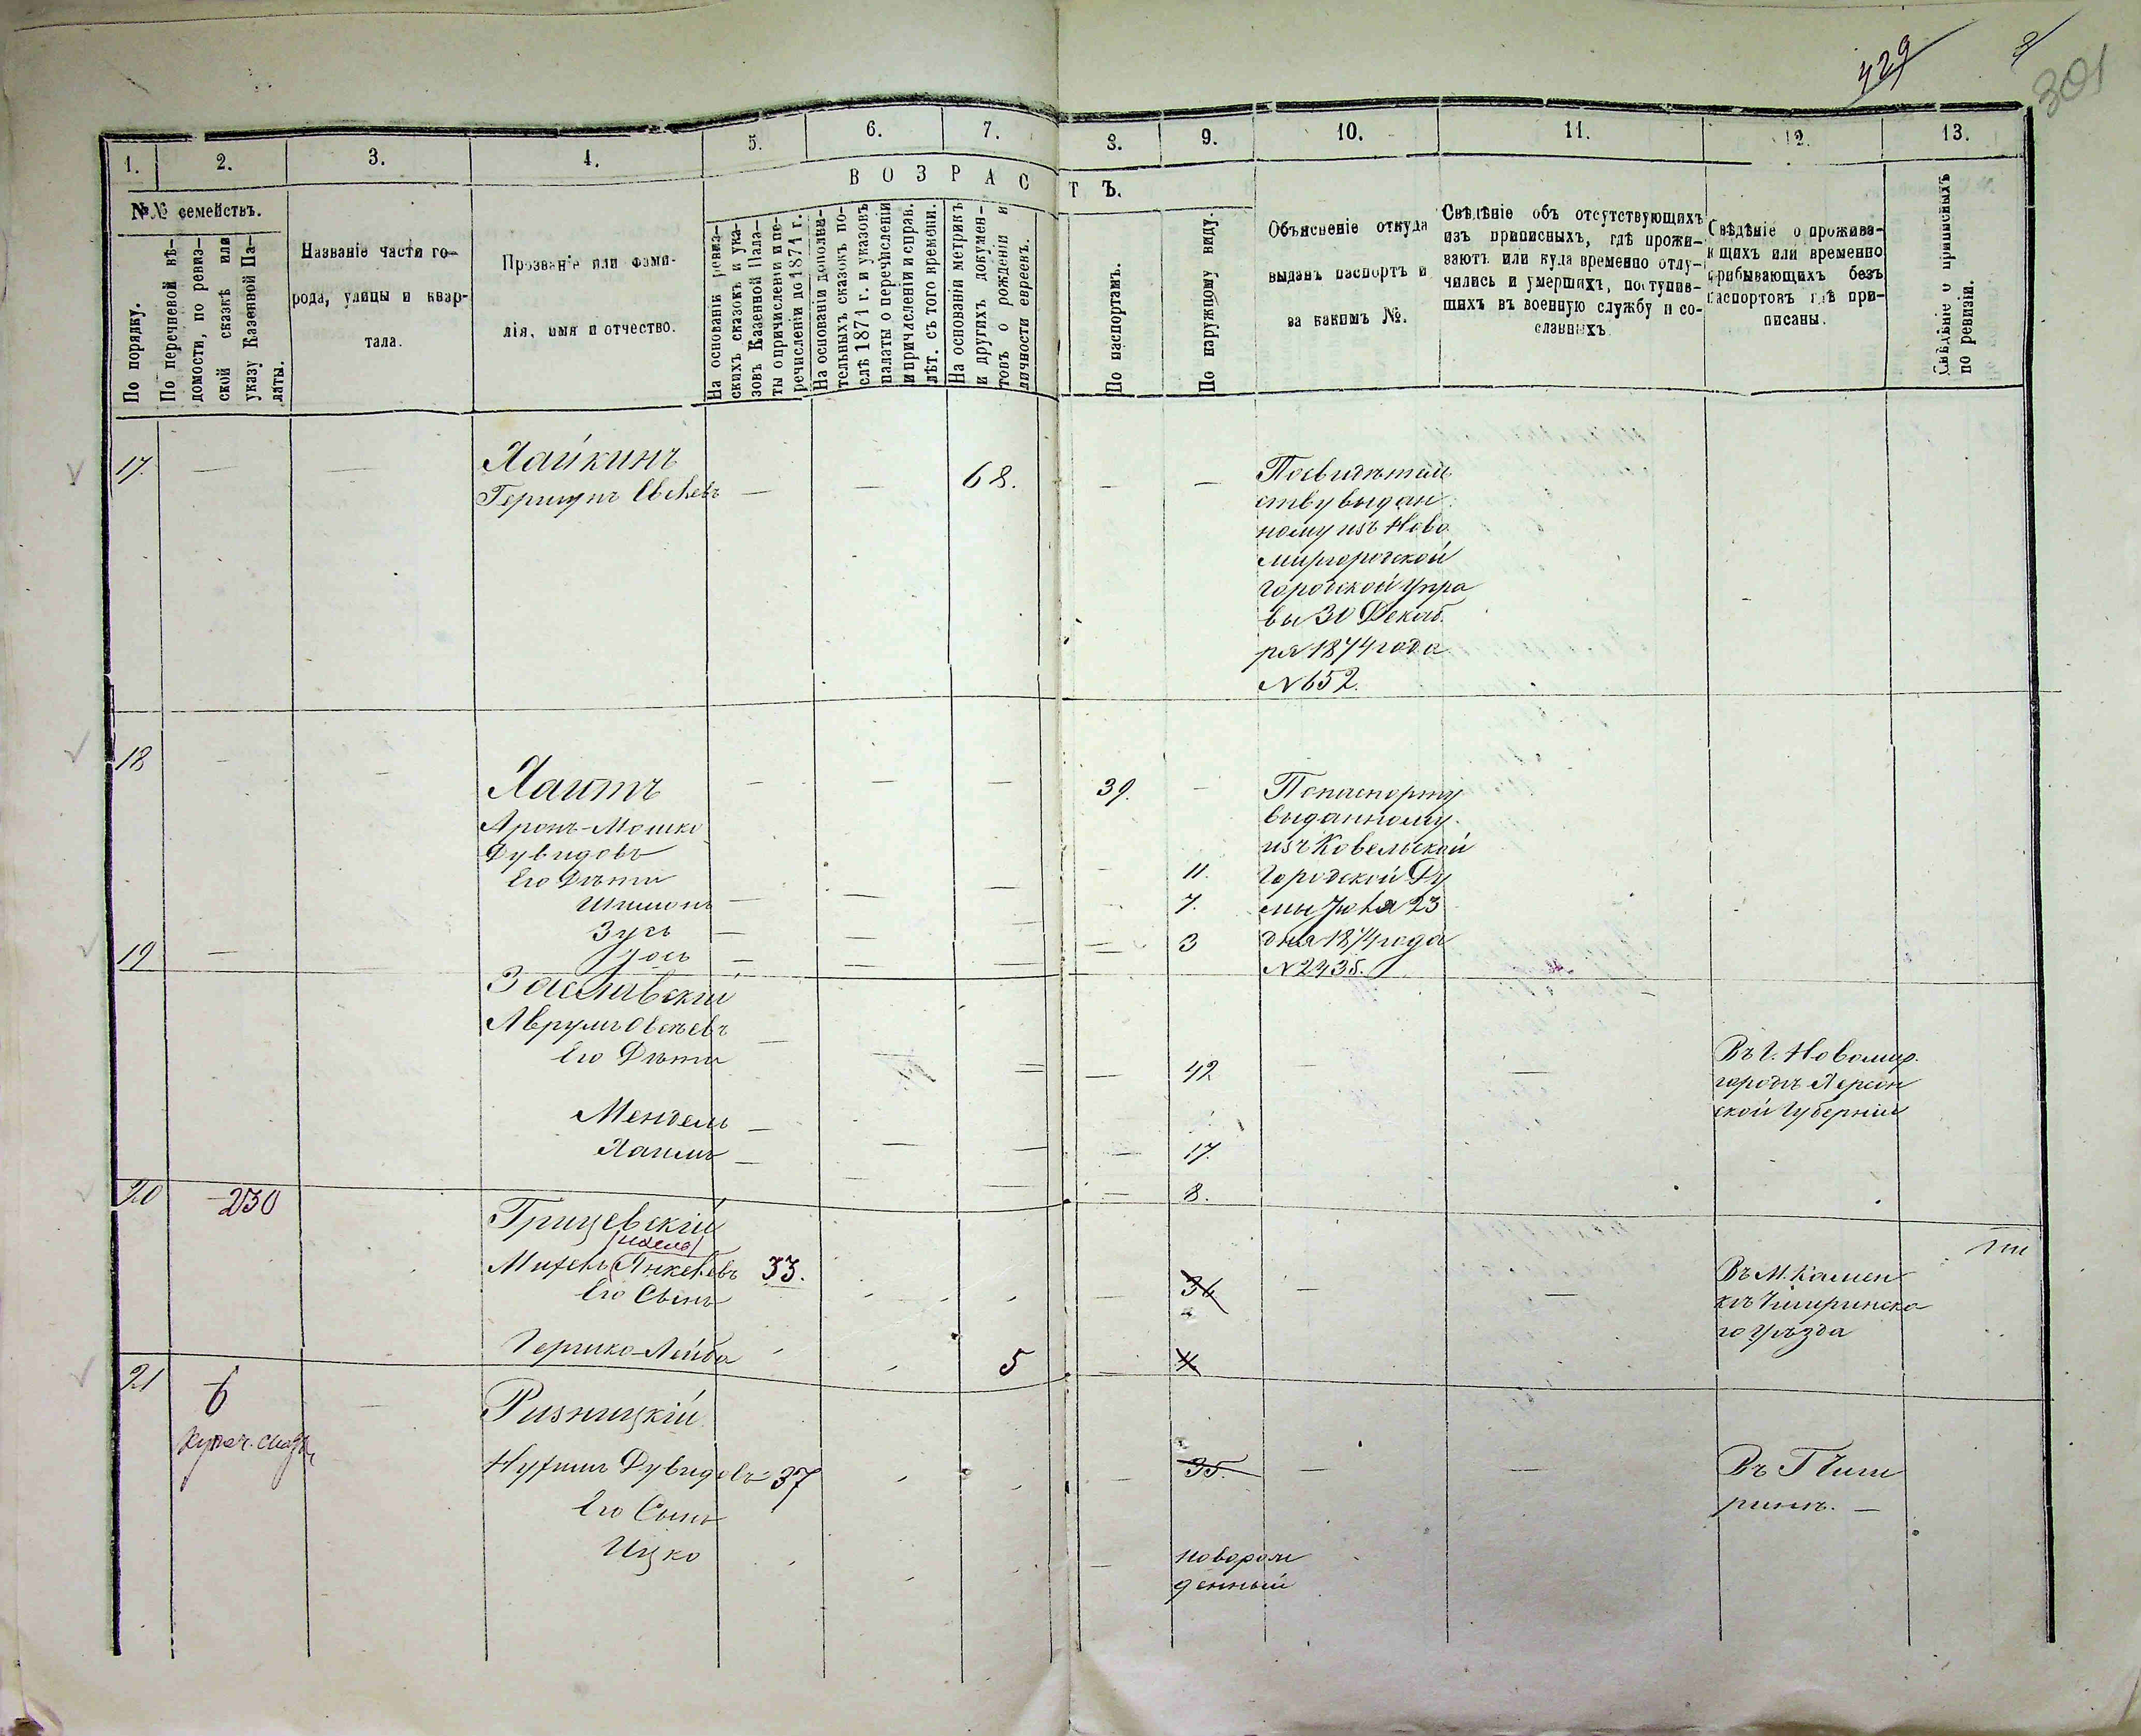 429
301
1.
2.
3.
4.
5.
6.
7.
8.
9.
10.
11.
12.
13.
В О З Р А С Т Ъ.
№№ семействъ.
По порядку.
По перечневой вѣ-
домости, по ревиз-
ской сказкѣ или
указу Казенной Па-
латы.
Названіе части го-
рода, улицы и квар-
тала.
Прозваніе или фами-
лія, имя и отчество.
На основаніи ревиз-
скихъ сказокъ и ука-
зовъ Казенной Пала-
ты о причислени и пе-
речислени по 1871 г.
На основаніи дополни-
тельныхъ сказокъ по-
слѣ 1871 г. и указовъ
палаты о перечислени
и причислени и справ.
лѣт. съ того времени.
На основаніи метрикъ
и другихъ докумен-
товъ о рожденіи и
личности евреевъ.
По паспортамъ.
По наружному виду.
Объясненіе откуда
выданъ паспортъ и
за какимъ №.
Свѣдѣніе объ отсутствующихъ
изъ приписныхъ, гдѣ прожи-
ваютъ или куда временно отлу-
чились и умершихъ, поступив-
шихъ въ военную службу и со-
сланныхъ.
Свѣдѣніе о прожива-
ющихъ или временно
прибывающихъ безъ
паспортовъ гдѣ при-
писаны.
Свѣдѣніе о приписныхъ
по ревизіи.
17.
Хайкинъ
Гершунъ Евсѣевъ
68.
Посвидѣтель
ству выдан
ному изъ Ново
миргородской
городской Упра
вы 30 Декаб.
ря 1874 года
N 652.
18
Хаитъ
39.
Попаспорту
Аронъ-Мошко
выданному
Дувидовъ
изъ Ковельской
Его Дѣти
11.
городской Ду
Шимонъ
7.
мы Юля 23
Зусь
3
дня 1874 года
Іось
N 2435.
19
Заславскій
Аврумъ Овсѣевъ
Его Дѣти
42
Въ г. Новомир.
городѣ Херсон
ской Губерніи
Мендель
Хаимъ
17.
8.
20
230
Грицевскій
Михель Янкелевъ
33.
36
Въ М. Камен
Его Сынъ
кѣ Чигиринска
го Уѣзда
Гершко-Лейба
5
4
21
6
купеч. сказ.
Ризницкій
Нухимъ Дувидовъ
37
35.
Въ Г Чиги
Его Сынъ
ринѣ.
Ицко
новорож
денный